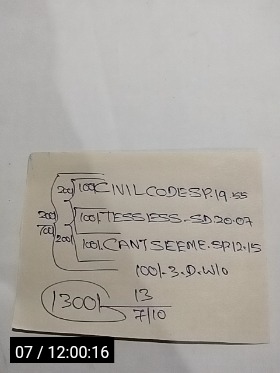 200 100 CIVILCODESP.19.55
100/-TESSIESS-SD.20.07
200 700 200
100/.CANTSEEME.SP.12.15
100/-3.D.W/O
1300/- 13
7/10
07 / 12:00:16